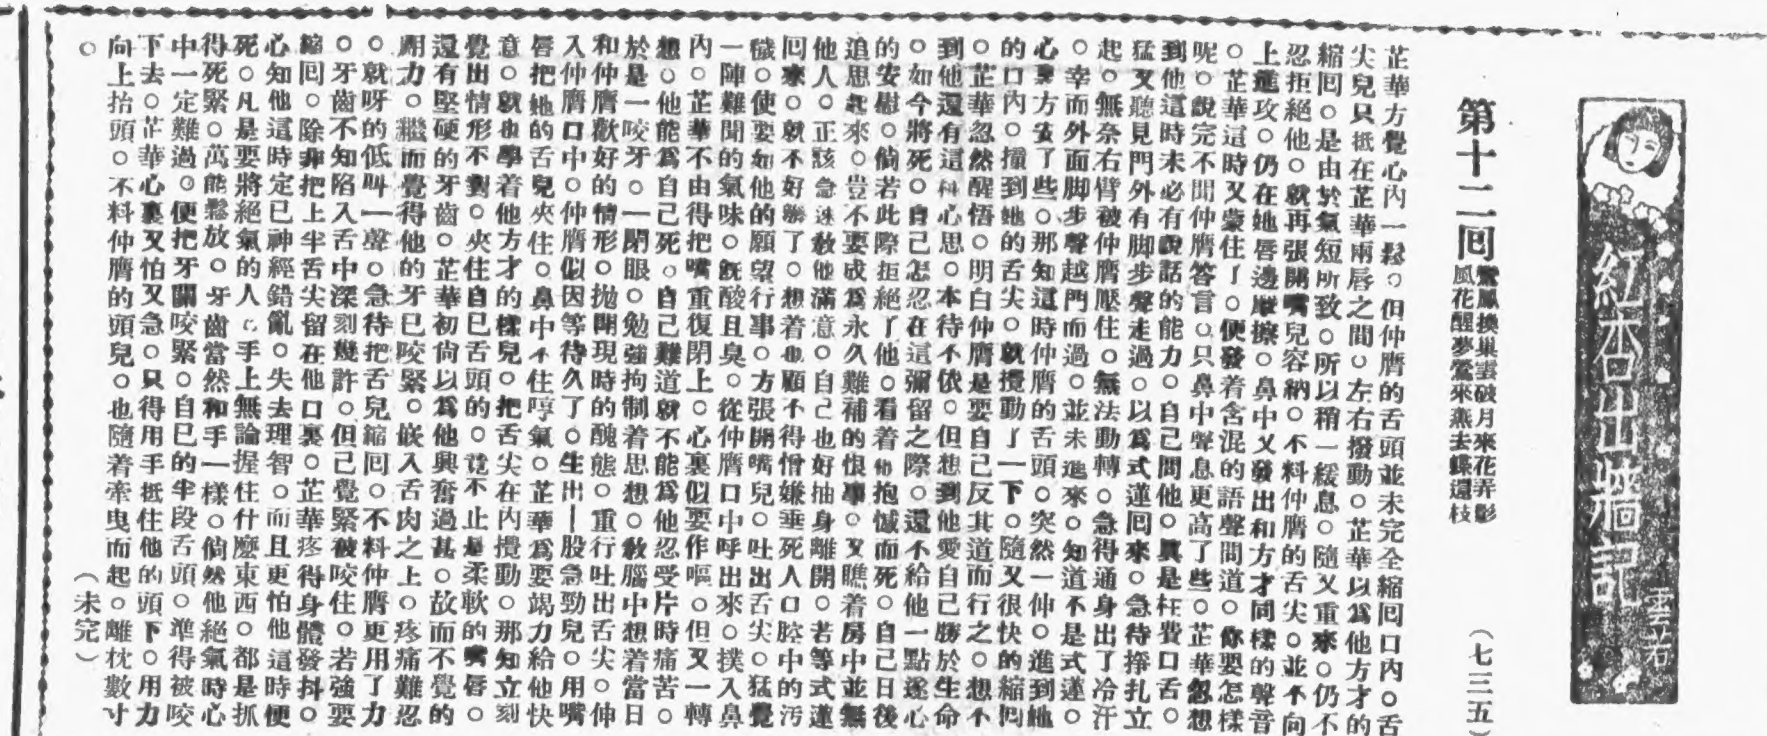 紅杏出墻記
雲若
第十二回
鸞鳳換巢雲破月來花弄影
風花醒夢鶯來燕去蝶還枝
(七三五)
芷華方覺心內一鬆。但仲膺的舌頭並未完全縮回口內。舌
尖兒只抵在芷華兩唇之間。左右撥動。芷華以爲他方才的
縮回。是由於氣短所致。所以稍一緩息。隨又重來。仍不
忍拒絕他。就再張開嘴兒容納。不料仲膺的舌尖。並不向
上進攻。仍在她唇邊廝擦。鼻中又發出和方才同樣的聲音
。芷華這時又蒙住了。便發着含混的語聲問道。你要怎樣
呢。說完不聞仲膺答言。只鼻中聲息更高了些。芷華忽想
到他這時未必有說話的能力。自己問他。眞是枉費口舌。
猛又聽見門外有脚步聲走過。以爲式蓮回來。急待掙扎立
起。無奈右臂被仲膺壓住。無法動轉。急得通身出了冷汗
。幸而外面脚步聲越門而過。並未進來。知道不是式蓮。
心裏方安了些。那知這時仲膺的舌頭。突然一伸。進到她
的口內。撞到她的舌尖。就攪動了一下。隨又很快的縮回
。芷華忽然醒悟。明白仲膺是要自己反其道而行之。想不
到他還有這種心思。本待不依。但想到他愛自己勝於生命
。如今將死。自己怎忍在這彌留之際。還不給他一點遂心
的安慰。倘若此際拒絕了他。看着他抱憾而死。自己日後
追思起來。豈不要成爲永久難補的恨事。又瞧着房中並無
他人。正該急速敎他滿意。自己也好抽身離開。若等式蓮
回來。就不好辦了。想着也顧不得憎嫌垂死人口腔中的汚
穢。使要如他的願望行事。方張開嘴兒。吐出舌尖。猛覺
一陣難聞的氣味。旣酸且臭。從仲膺口中呼出來。撲入鼻
內。芷華不由得把嘴重復閉上。心裏似要作嘔。但又一轉
想。他能爲自己死。自己難道就不能爲他忍受片時痛苦。
於是一咬牙。一閉眼。勉強拘制着思想。敎腦中想着當日
和仲膺歡好的情形。拋開現時的醜態。重行吐出舌尖。伸
入仲膺口中。仲膺似因等待久了。生出一股急勁兒。用嘴
唇把她的舌兒夾住。鼻中不住哼氣。芷華爲要竭力給他快
意。就也學着他方才的樣兒。把舌尖在內攪動。那知立刻
覺出情形不對。夾住自己舌頭的。竟不止是柔軟的嘴唇。
還有堅硬的牙齒。芷華初尙以爲他興奮過甚。故而不覺的
用力。繼而覺得他的牙已咬緊。嵌入舌肉之上。疼痛難忍
。就呀的低叫一聲。急待把舌兒縮回。不料仲膺更用了力
。牙齒不知陷入舌中深刻幾許。但己覺緊被咬住。若強要
縮回。除非把上半舌尖留在他口裏。芷華疼得身體發抖。
心知他這時定已神經錯亂。失去理智。而且更怕他這時便
死。凡是要將絕氣的人。手上無論握住什麼東西。都是抓
得死緊。萬能鬆放。牙齒當然和手一樣。倘然他絕氣時心
中一定難過。便把牙關咬緊。自已的半段舌頭。準得被咬
下去。芷華心裏又怕又急。只得用手抵住他的頭下。用力
向上抬頭。不料仲膺的頭兒。也隨着牽曳而起。離枕數寸
。
(未完)